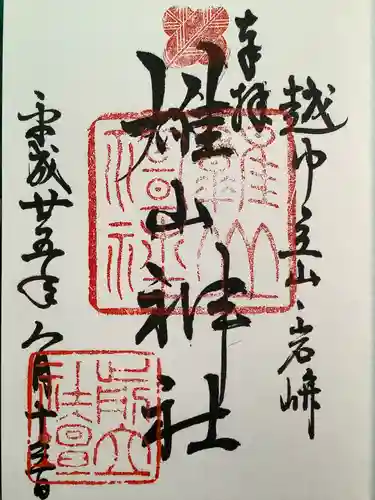 奉拝
越中立山岩峅
雄山神社
平成廿五年八月十三日